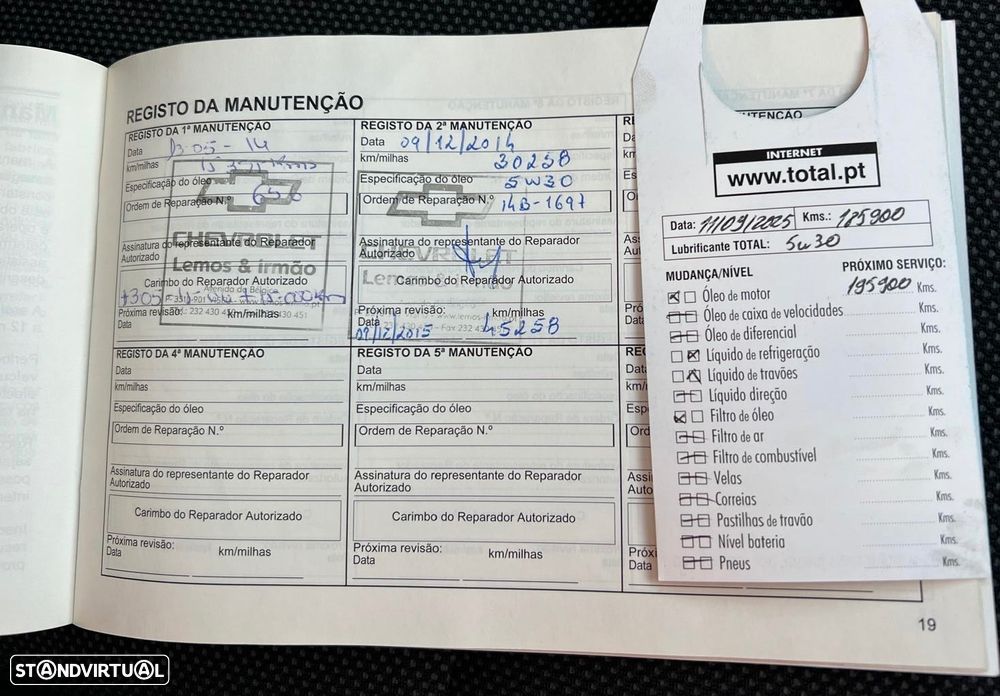 REGISTO DA MANUTENÇÃO
REGISTO DA 1ª MANUTENÇÃO
Data 13-05-14
km/milhas
Especificação do óleo
Ordem de Reparação N.º 656
Assinatura do representante do Reparador
Autorizado
CHEVROLET
Lemos & irmão
Carimbo do Reparador Autorizado
Avenida da Bélgica
Próxima revisão: km/milhas
Data
REGISTO DA 2ª MANUTENÇÃO
Data 09/12/2014
km/milhas 30258
Especificação do óleo 5W30
Ordem de Reparação N.º 14B-1697
Assinatura do representante do Reparador
Autorizado
CHEVROLET
Lemos & irmão
Carimbo do Reparador Autorizado
Próxima revisão: km/milhas
Data 09/12/2015 45258
REGISTO DA 4ª MANUTENÇÃO
Data
km/milhas
Especificação do óleo
Ordem de Reparação N.º
Assinatura do representante do Reparador
Autorizado
Carimbo do Reparador Autorizado
Próxima revisão: km/milhas
Data
REGISTO DA 5ª MANUTENÇÃO
Data
km/milhas
Especificação do óleo
Ordem de Reparação N.º
Assinatura do representante do Reparador
Autorizado
Carimbo do Reparador Autorizado
Próxima revisão: km/milhas
Data
INTERNET
www.total.pt
Data: 11/09/2025 Kms.: 185900
Lubrificante TOTAL: 5w30
MUDANÇA/NÍVEL PRÓXIMO SERVIÇO:
Óleo de motor 195900 Kms.
Óleo de caixa de velocidades Kms.
Óleo de diferencial Kms.
Líquido de refrigeração Kms.
Líquido de travões Kms.
Líquido direção Kms.
Filtro de óleo Kms.
Filtro de ar Kms.
Filtro de combustível Kms.
Velas Kms.
Correias Kms.
Pastilhas de travão Kms.
Nível bateria Kms.
Pneus Kms.
19
STANDVIRTUAL